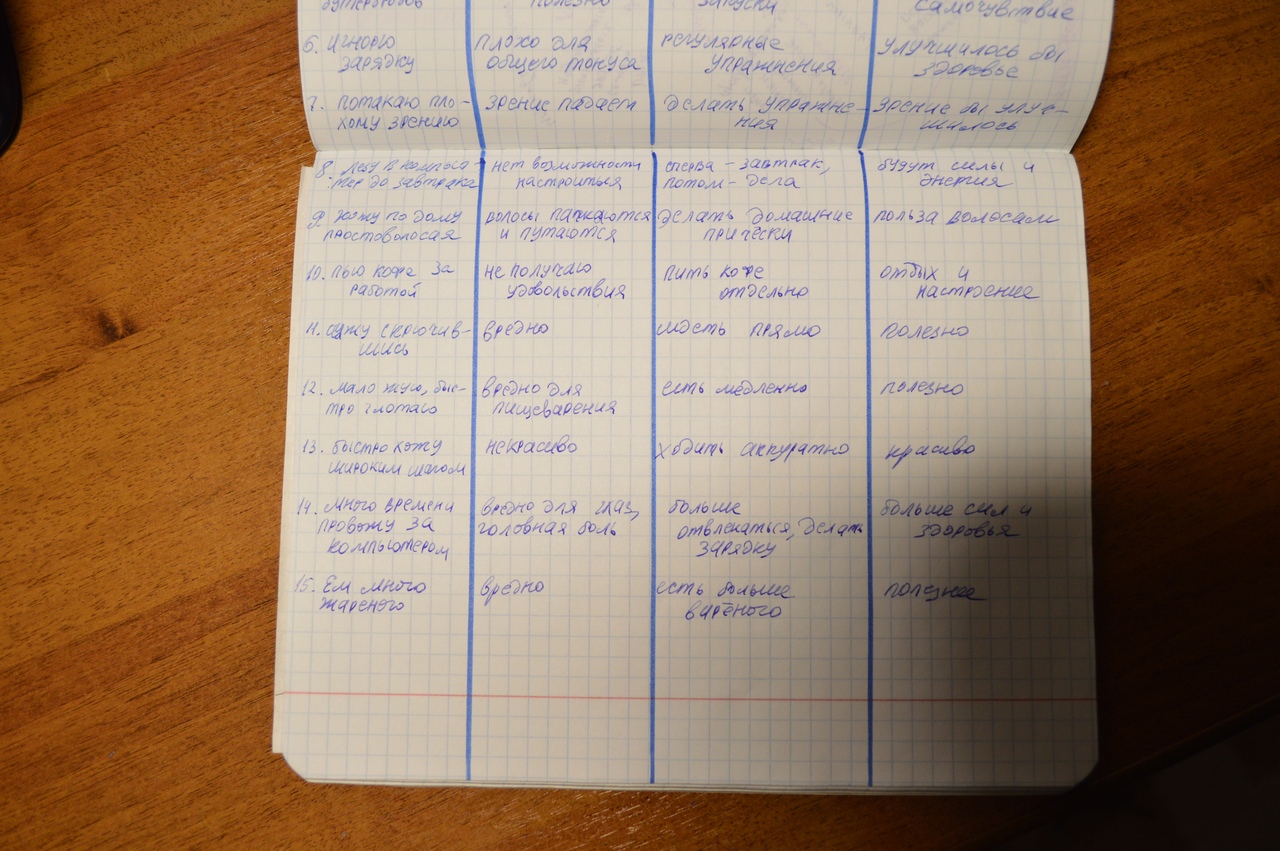 бутербродов
полезно
закуски
самочувствие
6. Игнорю
зарядку
плохо для
общего тонуса
регулярные
упражнения
улучшилось бы
здоровье
7. Потакаю пло-
хому зрению
зрение падает
делать упражне-
ния
зрение бы улуч-
шилось
8. Лезу в компью-
тер до завтрака
нет возможности
настроиться
сперва - завтрак,
потом - дела
будут силы и
энергия
9. Хожу по дому
простоволосая
волосы пачкаются
и путаются
делать домашние
прически
польза волосам
10. Пью кофе за
работой
не получаю
удовольствия
пить кофе
отдельно
отдых и
настроение
11. Сижу скрючив-
шись
вредно
прямо
полезно
12. Мало жую, быс-
тро глотаю
вредно для
пищеварения
есть медленно
полезно
13. Быстро хожу
широким шагом
некрасиво
ходить аккуратно
красиво
14. Много времени
провожу за
компьютером
вредно для глаз,
головная боль
больше
отвлекаться, делать
зарядку
больше сил и
здоровья
15. Ем много
жареного
вредно
есть больше
варёного
полезнее